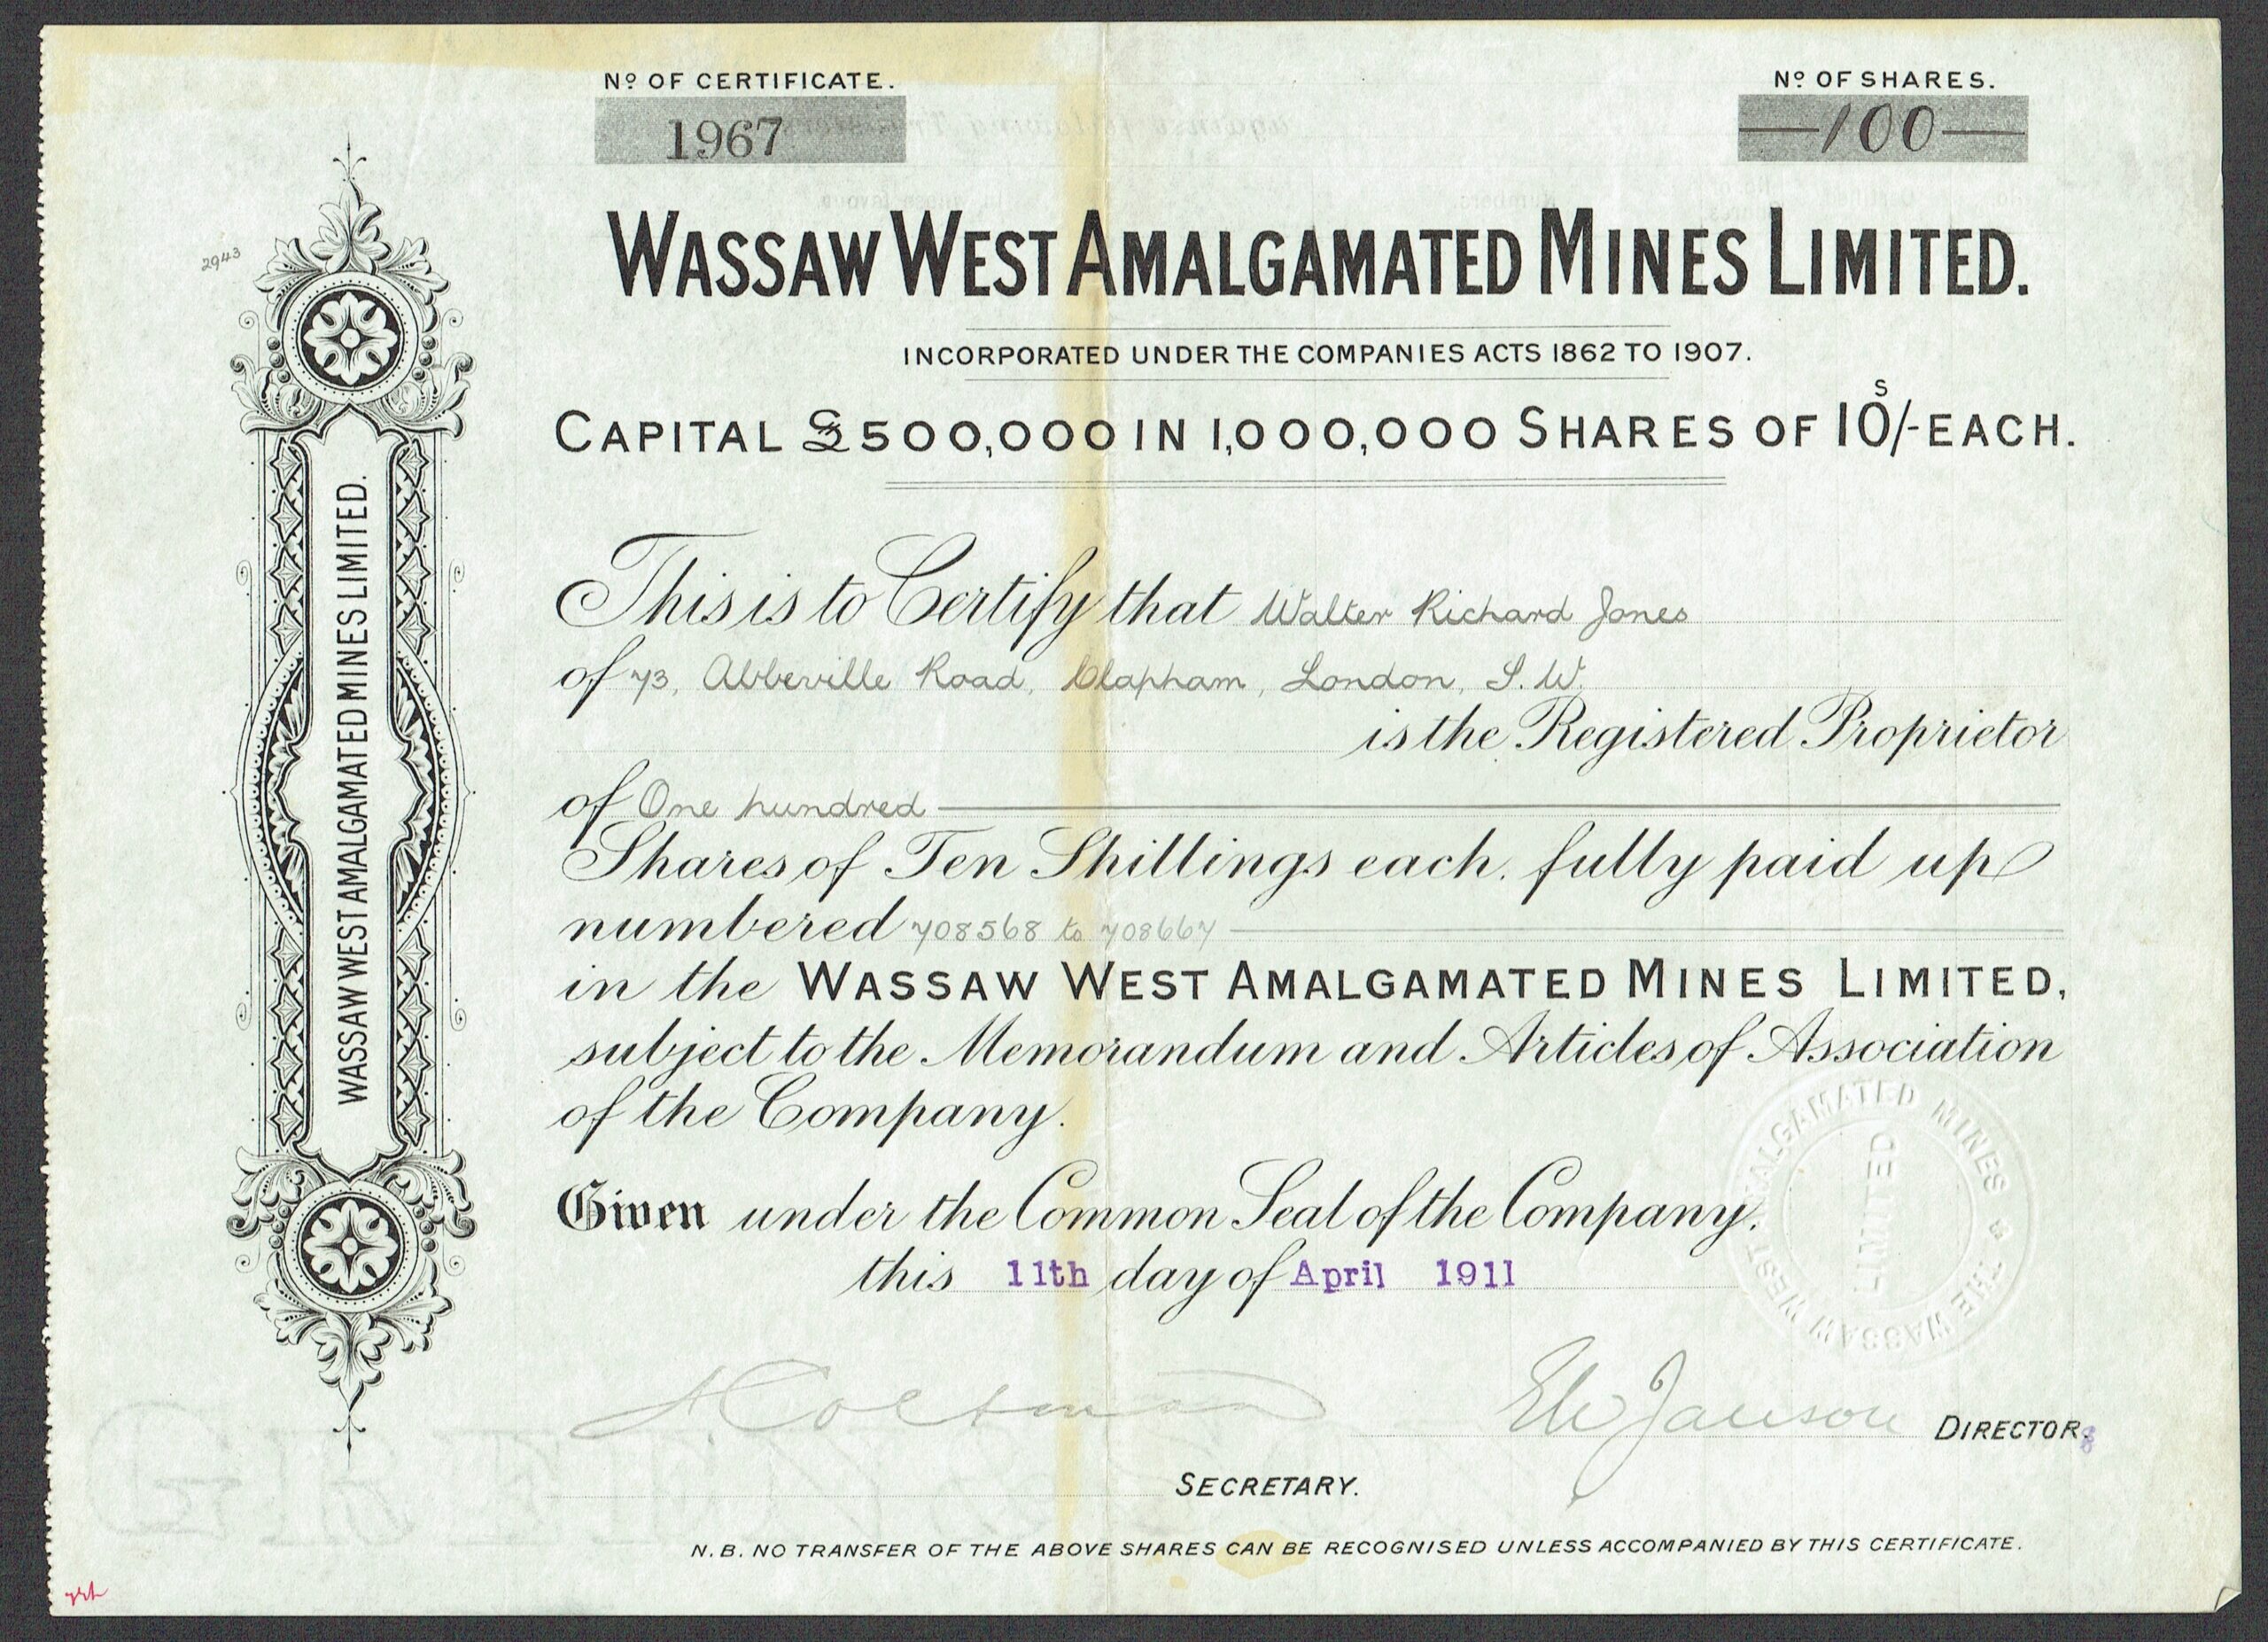 No OF CERTIFICATE.
1967
No OF SHARES.
—100—
2943
WASSAW WEST AMALGAMATED MINES LIMITED.
INCORPORATED UNDER THE COMPANIES ACTS 1862 TO 1907.
CAPITAL £500,000 IN 1,000,000 SHARES OF 10s/- EACH.
WASSAW WEST AMALGAMATED MINES LIMITED.
This is to Certify that Walter Richard Jones
of 73, Abbeville Road, Clapham, London, S.W.
is the Registered Proprietor
of One hundred
Shares of Ten Shillings each, fully paid up
numbered 708568 to 708667
in the WASSAW WEST AMALGAMATED MINES LIMITED,
subject to the Memorandum and Articles of Association
of the Company.
Given under the Common Seal of the Company,
this 11th day of April 1911
THE WASSAW WEST AMALGAMATED MINES
LIMITED
DIRECTORS
SECRETARY.
N.B. NO TRANSFER OF THE ABOVE SHARES CAN BE RECOGNISED UNLESS ACCOMPANIED BY THIS CERTIFICATE.